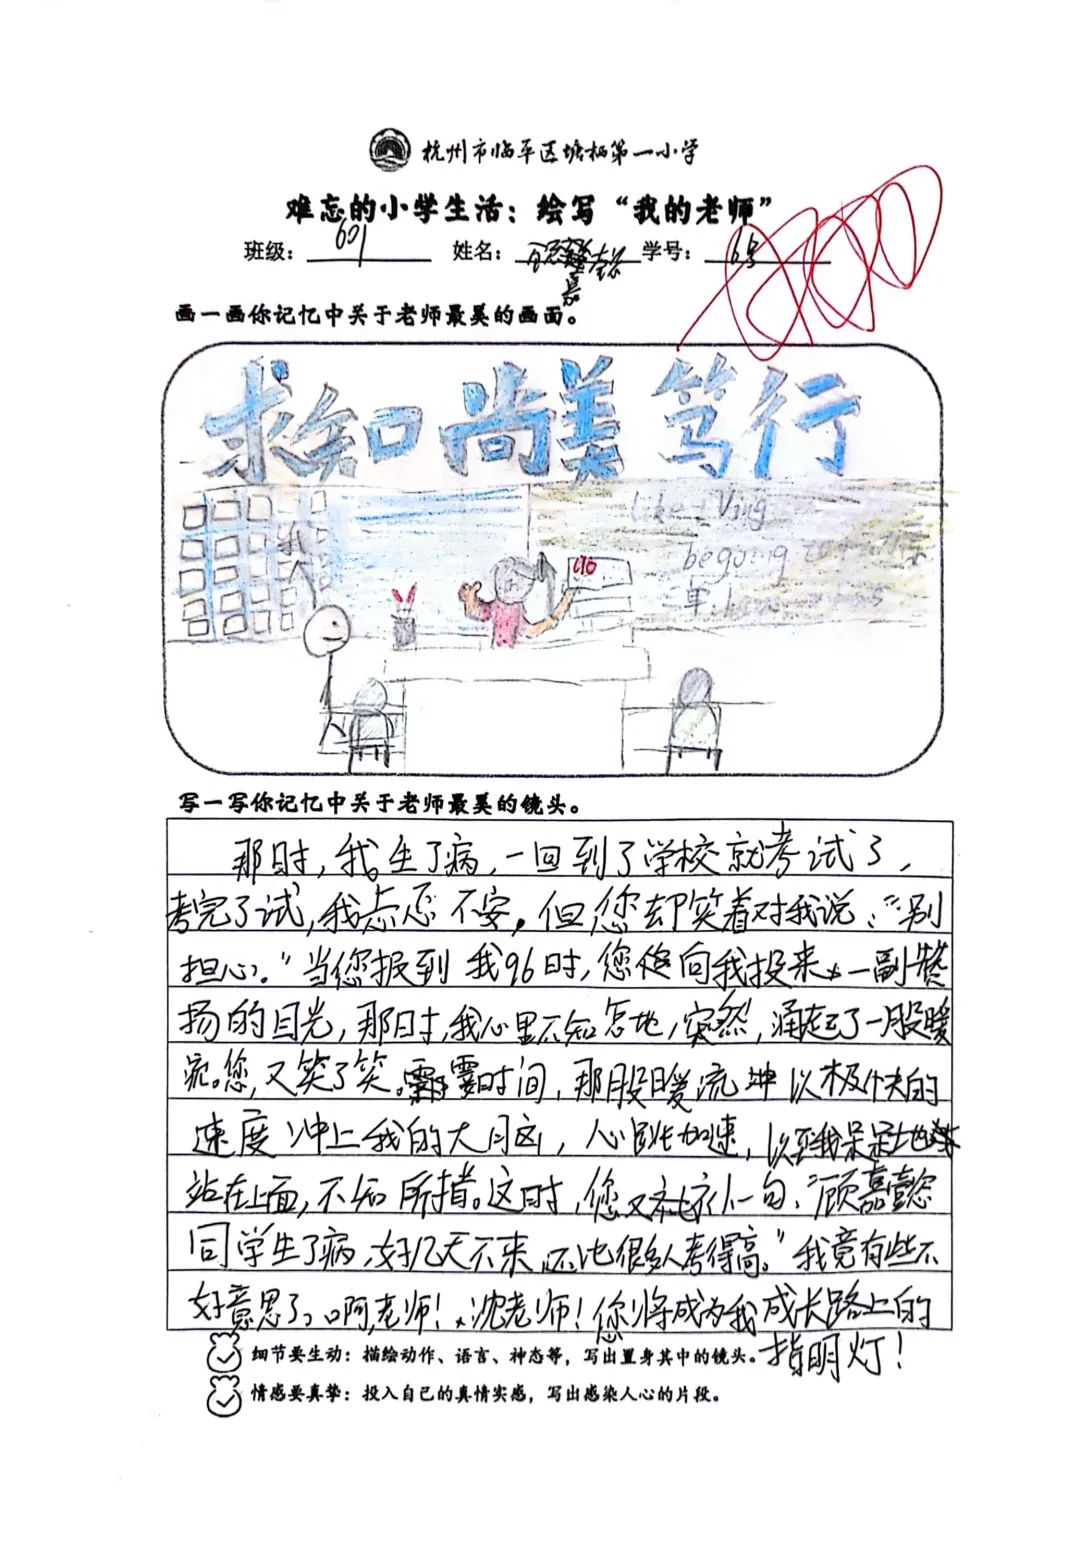 杭州市临平区塘栖第一小学
难忘的小学生活：绘写“我的老师”
班级：601 姓名： 学号：6号
画一画你记忆中关于老师最美的画面。
求知 尚美 笃行
like
单
96
写一写你记忆中关于老师最美的镜头。
那时，我生了病，一回到了学校就考试了，
考完了试，我忐忑不安，但您却笑着对我说：“别
担心。”当您报到我96时，您向我投来一副赞
扬的目光，那时，我心里不知怎地，突然，涌起了一股暖
流。您，又笑了笑。霎时间，那股暖流以极快的
速度冲上我的大脑，心跳加速，以至我呆呆地
站在上面，不知所措。这时，您又补一句：“顾嘉懿
同学生了病，好几天不来，还比很多人考得高。”我竟有些不
好意思了。啊，老师！沈老师！您将成为我成长路上的
指明灯！
细节要生动：描绘动作、语言、神态等，写出置身其中的镜头。
情感要真挚：投入自己的真情实感，写出感染人心的片段。